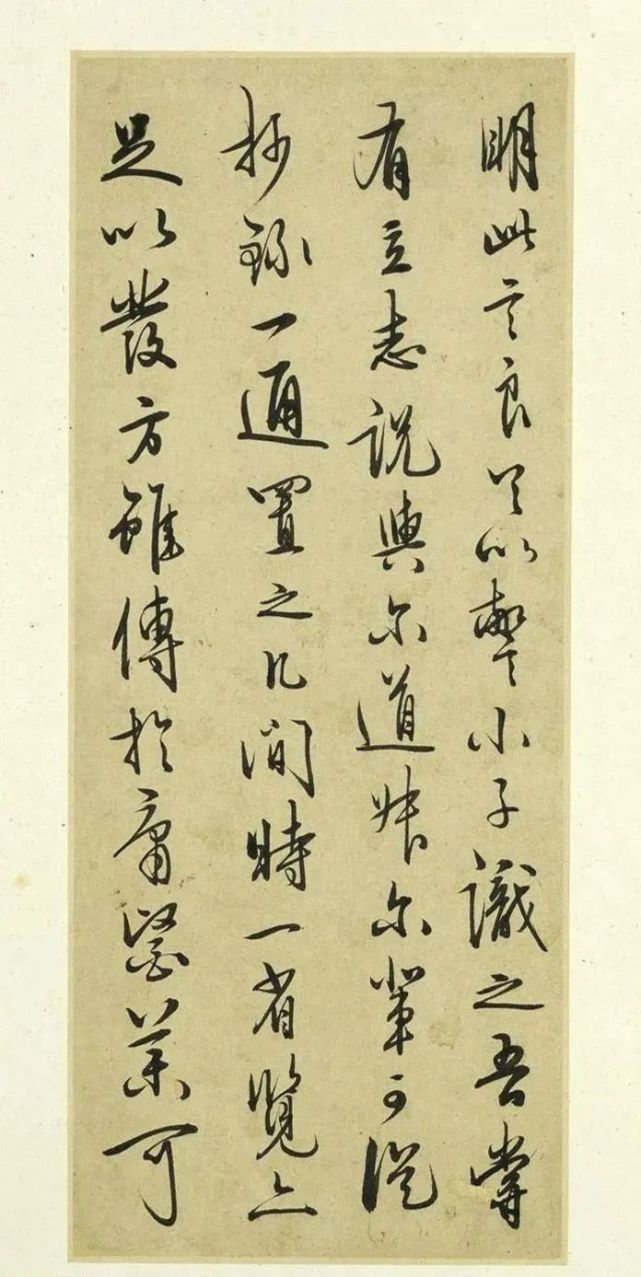 明此言良足以警小子識之吾嘗
有立志說與尔道叔尔輩可從
抄錄一通置之几間時一省覽亦
足以發方雖傳於庸醫藥可